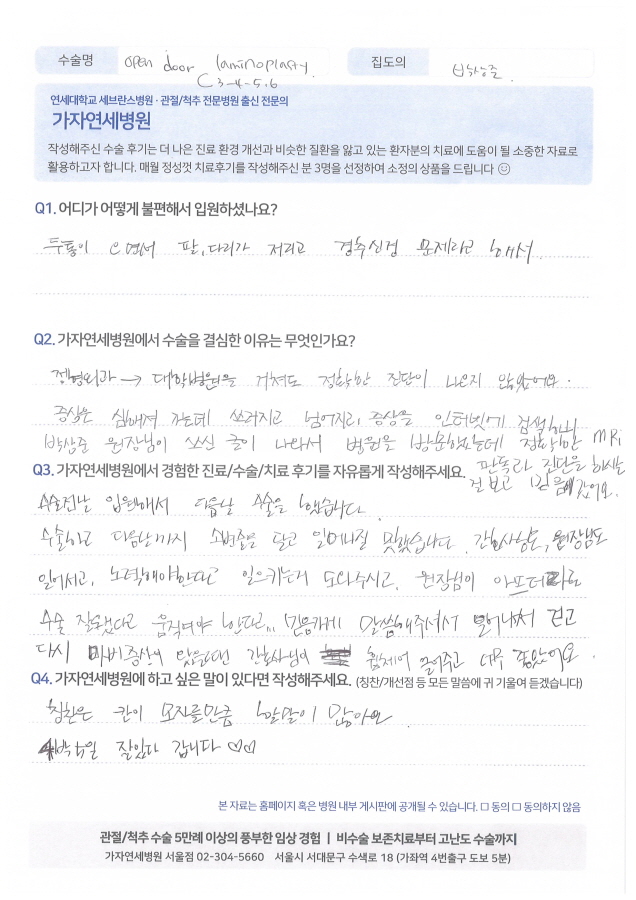 수술명 open door laminoplasty. 집도의 박상준.
C3-4-5.6
연세대학교 세브란스병원 · 관절/척추 전문병원 출신 전문의
가자연세병원
작성해주신 수술 후기는 더 나은 진료 환경 개선과 비슷한 질환을 앓고 있는 환자분의 치료에 도움이 될 소중한 자료로
활용하고자 합니다. 매월 정성껏 치료후기를 작성해주신 분 3명을 선정하여 소정의 상품을 드립니다 ☺
Q1. 어디가 어떻게 불편해서 입원하셨나요?
두통이 오면서 팔, 다리가 저리고 경추신경 문제라고 해서.
Q2. 가자연세병원에서 수술을 결심한 이유는 무엇인가요?
정형외과 → 대학병원을 거쳐도 정확한 진단이 나오지 않았어요.
증상은 심해져 가는데 쓰러지고 넘어지고, 증상을 인터넷에 검색하니
박상준 원장님이 쓰신 글이 나와서 병원을 방문했는데 정확한 MRi
판독과 진단을 하시는
Q3. 가자연세병원에서 경험한 진료/수술/치료 후기를 자유롭게 작성해주세요.
걸 보고 믿음이 갔어요.
수술전날 입원해서 다음날 수술을 했습니다.
수술하고 다음날까지 소변줄을 달고 일어나질 못했습니다. 간호사님도, 원장님도
일어서고, 노력해야한다고 일으키는거 도와주시고, 원장님이 아프더라도
수술 잘됐다고 움직여야 한다고.. 믿음가게 말씀해주셔서 일어나서 걷고
다시 마비증상이 왔을때 간호사님이 휠체어 끌어주고 너무 좋았어요.
Q4. 가자연세병원에 하고 싶은 말이 있다면 작성해주세요. (칭찬/개선점 등 모든 말씀에 귀 기울여 듣겠습니다)
칭찬은 칸이 모자를만큼 할말이 많아요
잘있다 갑니다 ♡♡
본 자료는 홈페이지 혹은 병원 내부 게시판에 공개될 수 있습니다. □ 동의 □ 동의하지 않음
관절/척추 수술 5만례 이상의 풍부한 임상 경험 | 비수술 보존치료부터 고난도 수술까지
가자연세병원 서울점 02-304-5660 서울시 서대문구 수색로 18 (가좌역 4번출구 도보 5분)